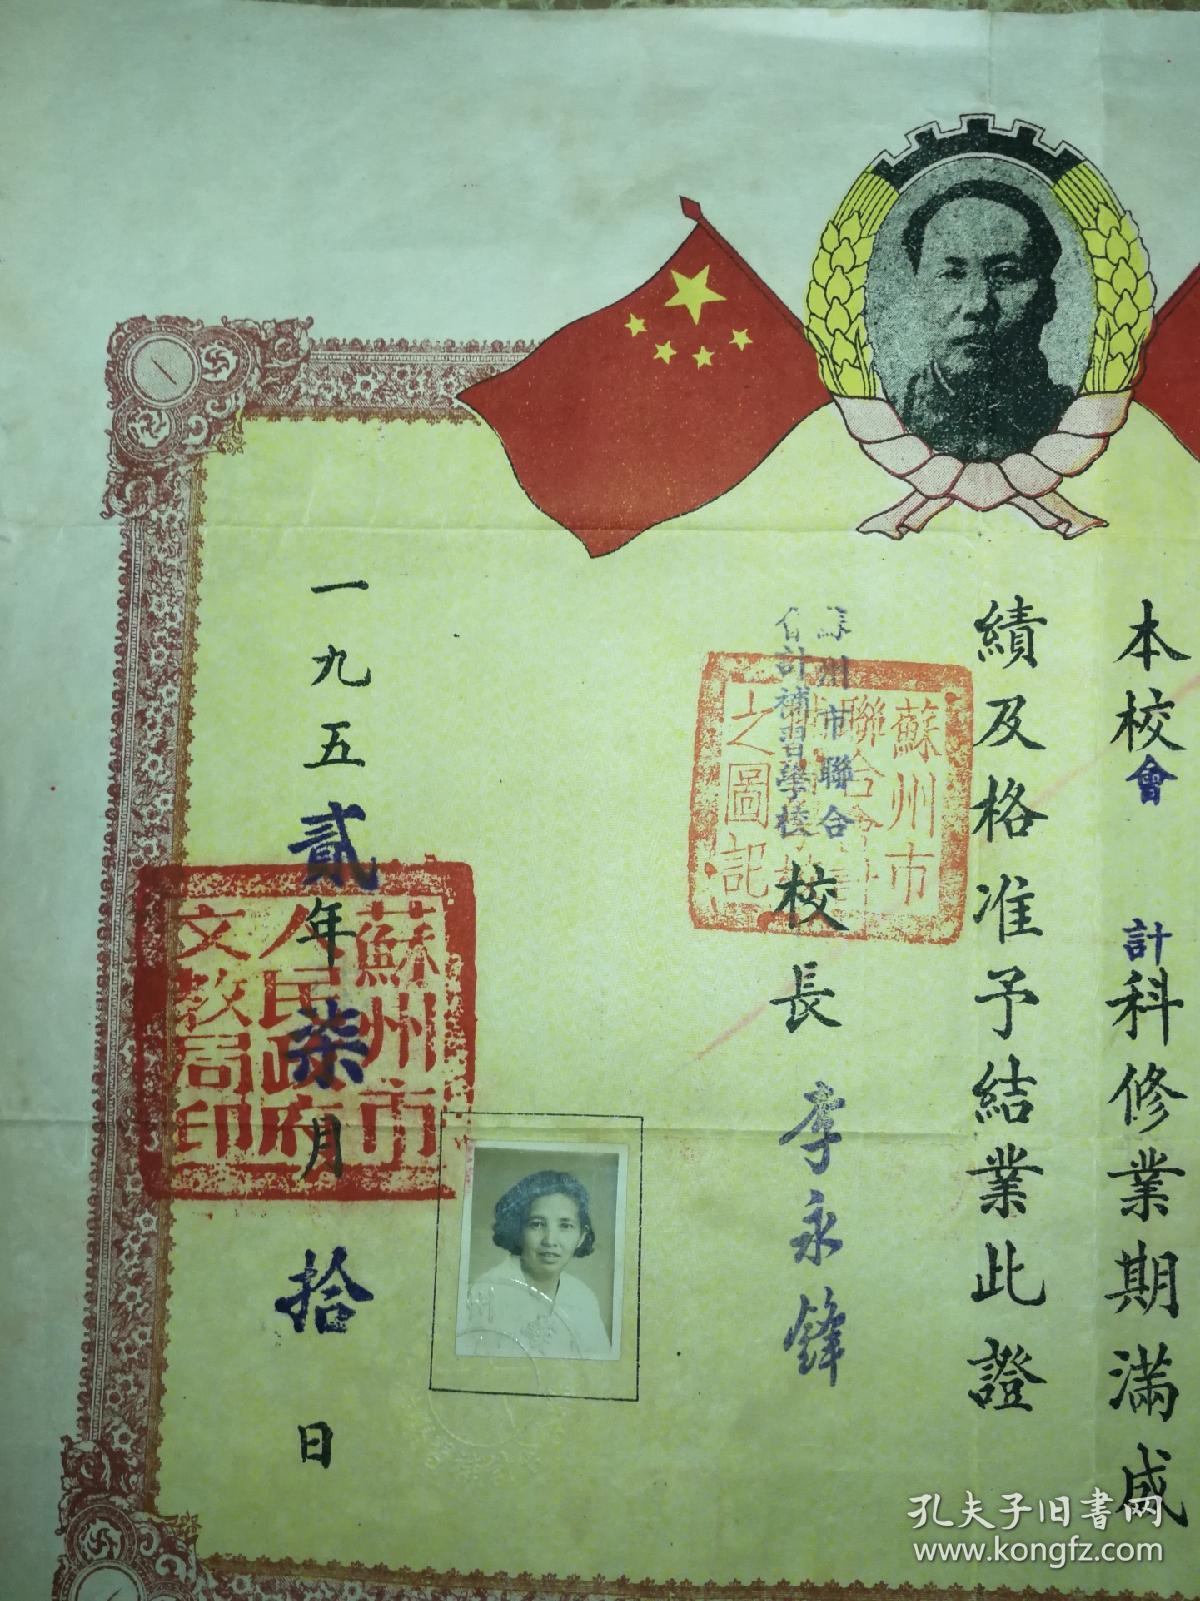 本校會計科修業期滿成
績及格准予結業此證
蘇州市聯合
會計補習學校
校長李永鋒
蘇州市
聯合會計
之圖記
一九五貳年柒月拾日
蘇州市
人民政府
文教局印
孔夫子旧书网
www.kongfz.com